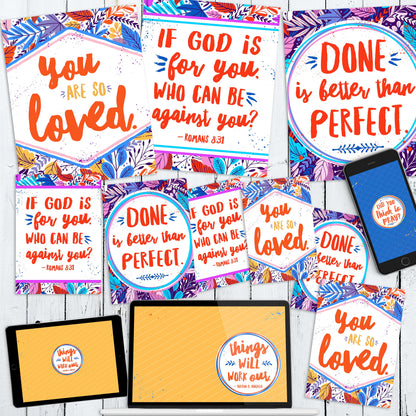 You
ARE SO
loved.
IF GOD IS
for you,
WHO CAN BE
against you?
– ROMANS 8:31
DONE
is better than
PERFECT.
IF GOD IS
for you,
WHO CAN BE
against you?
– ROMANS 8:31
DONE
is better than
PERFECT.
IF GOD IS
for you,
WHO CAN BE
against you?
– ROMANS 8:31
You
ARE SO
loved.
DONE
is better than
PERFECT.
DID YOU
think to
PRAY?
You
ARE SO
loved.
things
WILL
WORK OUT.
things
WILL
WORK OUT.